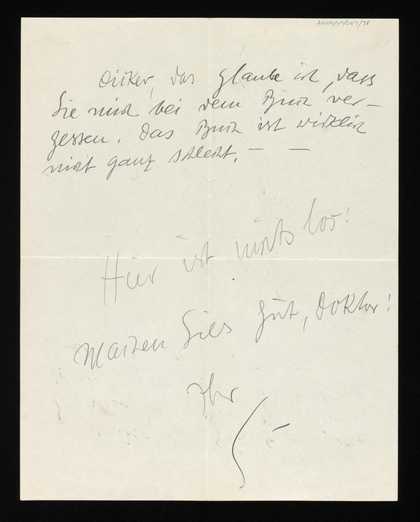 das Glaube ich, dass
Sie mich bei dem Buch ver-
gessen. Das Buch ist wirklich
nicht ganz schlecht. — —
Hier ist nichts los!
Machen Sies gut, Doktor!
Ihr